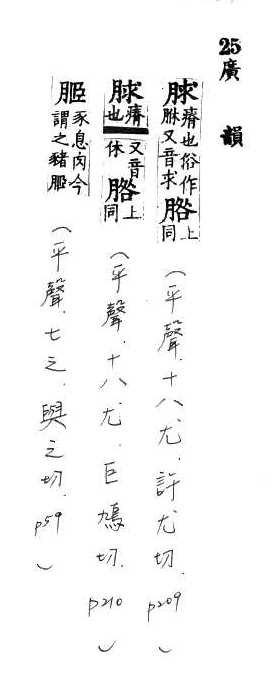 25廣韻
脙瘠也俗作脉又音求𦚧上同(平聲.十八尤.許尤切.p209)
脙瘠也又音休𦚧上同(平聲.十八尤.巨鳩切.p210)
䏰豕息肉今謂之豬䏰(平聲.七之.與之切.p59)